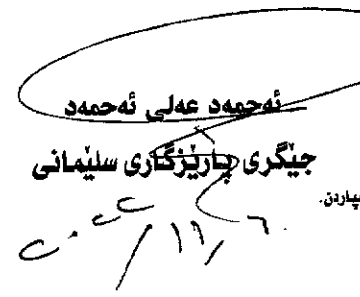 ئەحمەد عەلی ئەحمەد
جێگری پارێزگاری سلێمانی
سپاردن.
٢٠٢٢/١١/٦